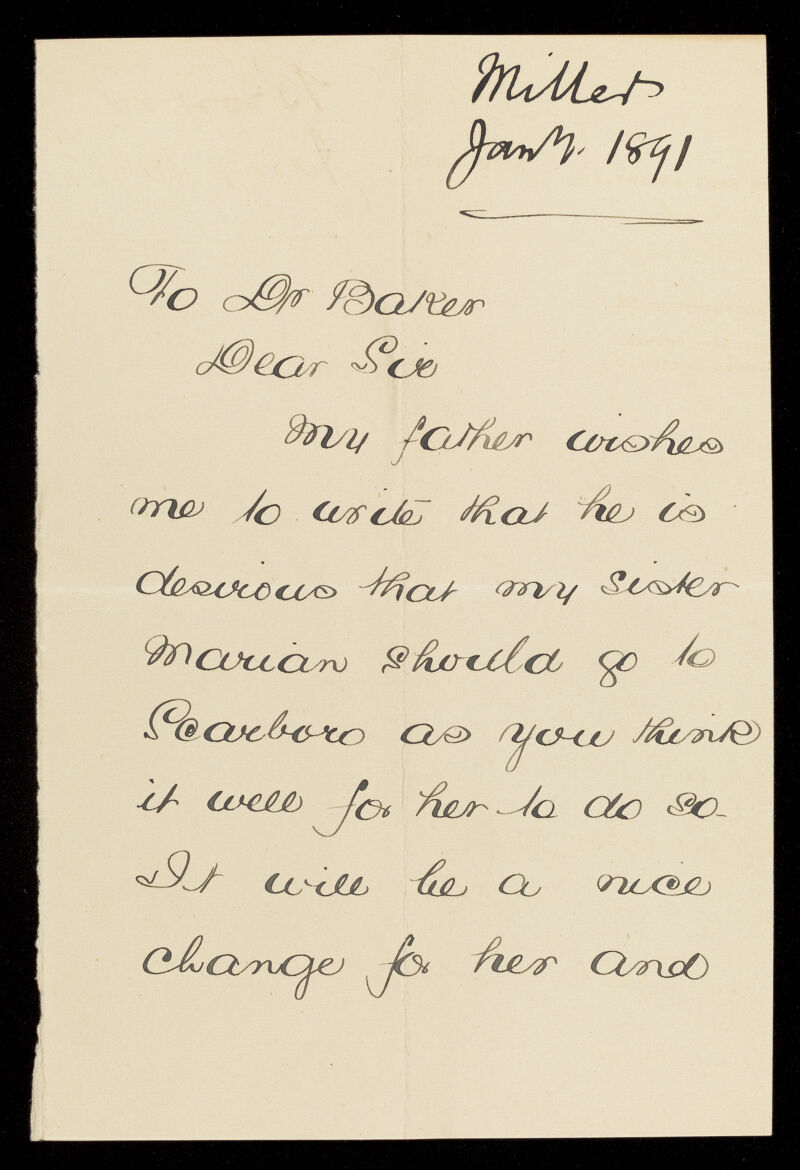 Millet
Jany. 1891
To Dr Baker
Dear Sir
My father wishes
me to write that he is
desirous that my sister
Marian should go to
Scarboro as you think
it well for her to do so.
It will be a nice
change for her and